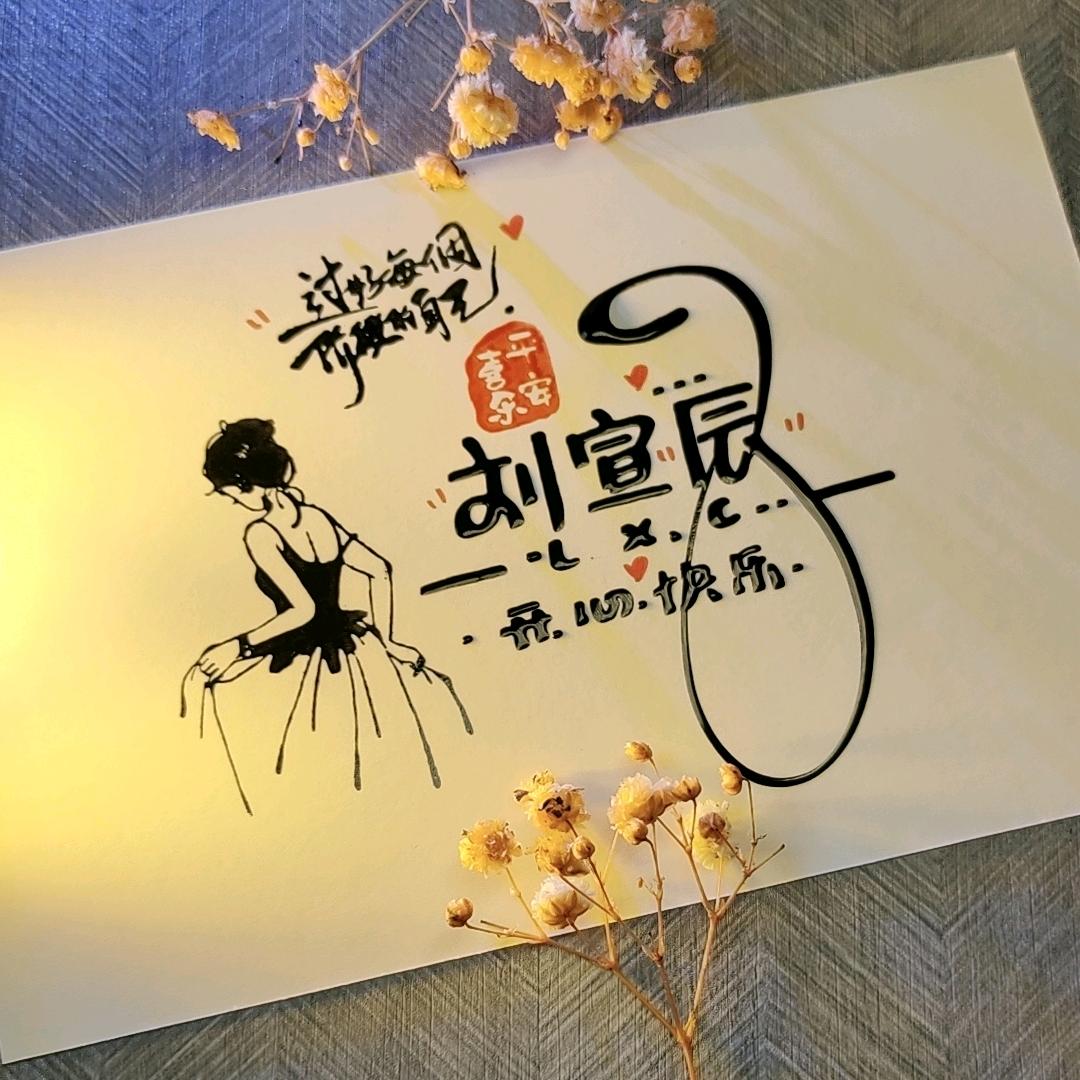 过好每個
阶段的自己.
平安
喜乐
刘宣辰
L X. C
开心快乐